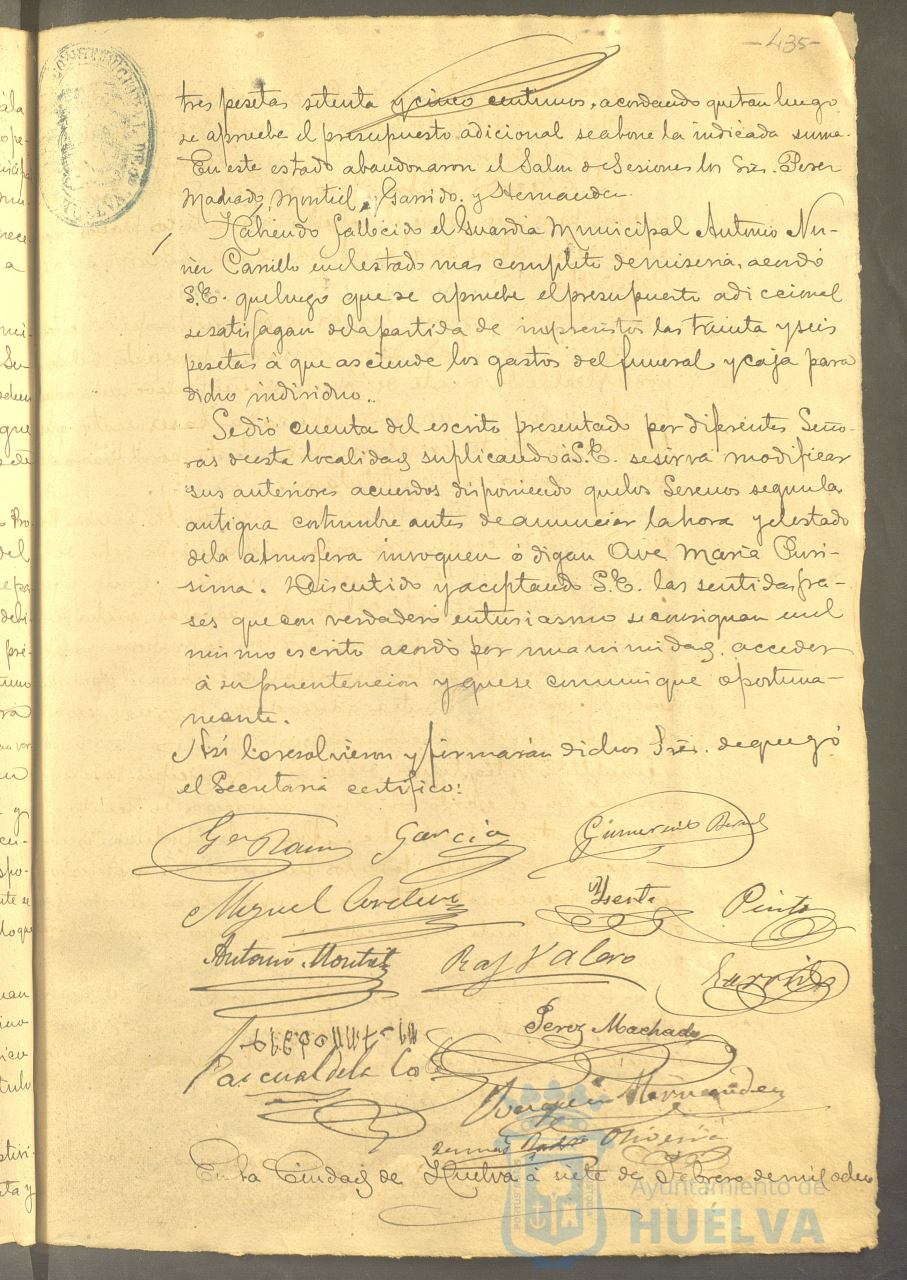 -435-
tres pesetas setenta y cinco centimos, acordando que tan luego
se apruebe el presupuesto adicional se abone la indicada suma.
En este estado abandonaron el Salon de Sesiones los Sres. Perez
Machado, Montiel, Garrido y Hernandez.
Habiendo fallecido el Guardia Municipal Antonio Nu-
ñez Carrillo en el estado mas completo de miseria, acordó
S.E. que luego que se apruebe el presupuesto adiccional
se satisfagan de la partida de imprevistos las treinta y seis
pesetas á que asciende los gastos del funeral y caja para
dicho individuo.
Se dió cuenta del escrito presentado por diferentes Seño-
ras de esta localidad suplicando á S.E. se sirva modificar
sus anteriores acuerdos disponiendo que los Serenos segun la
antigua costumbre antes de anunciar la hora y el estado
de la atmosfera invoquen ó digan Ave Maria Puri-
sima. Discutido y aceptando S.E. las sentidas fra-
ses que con verdadero entusiasmo se consignan en el
mismo escrito acordó por unanimidad acceder
á su pretencion y que se comunique oportuna-
mente.
Asi lo resolvieron y firmarán dichos Sres. de que yó
el Secretario certifico:
Garcia
Gumersindo
Miguel
Pinto
Antonio Montiel Raf Valero Garrido
Perez Machado
Pascual de la
Joaquin Hernandez
Oliveira
En la Ciudad de Huelva á siete de Febrero de mil ocho
Ayuntamiento de
HUELVA